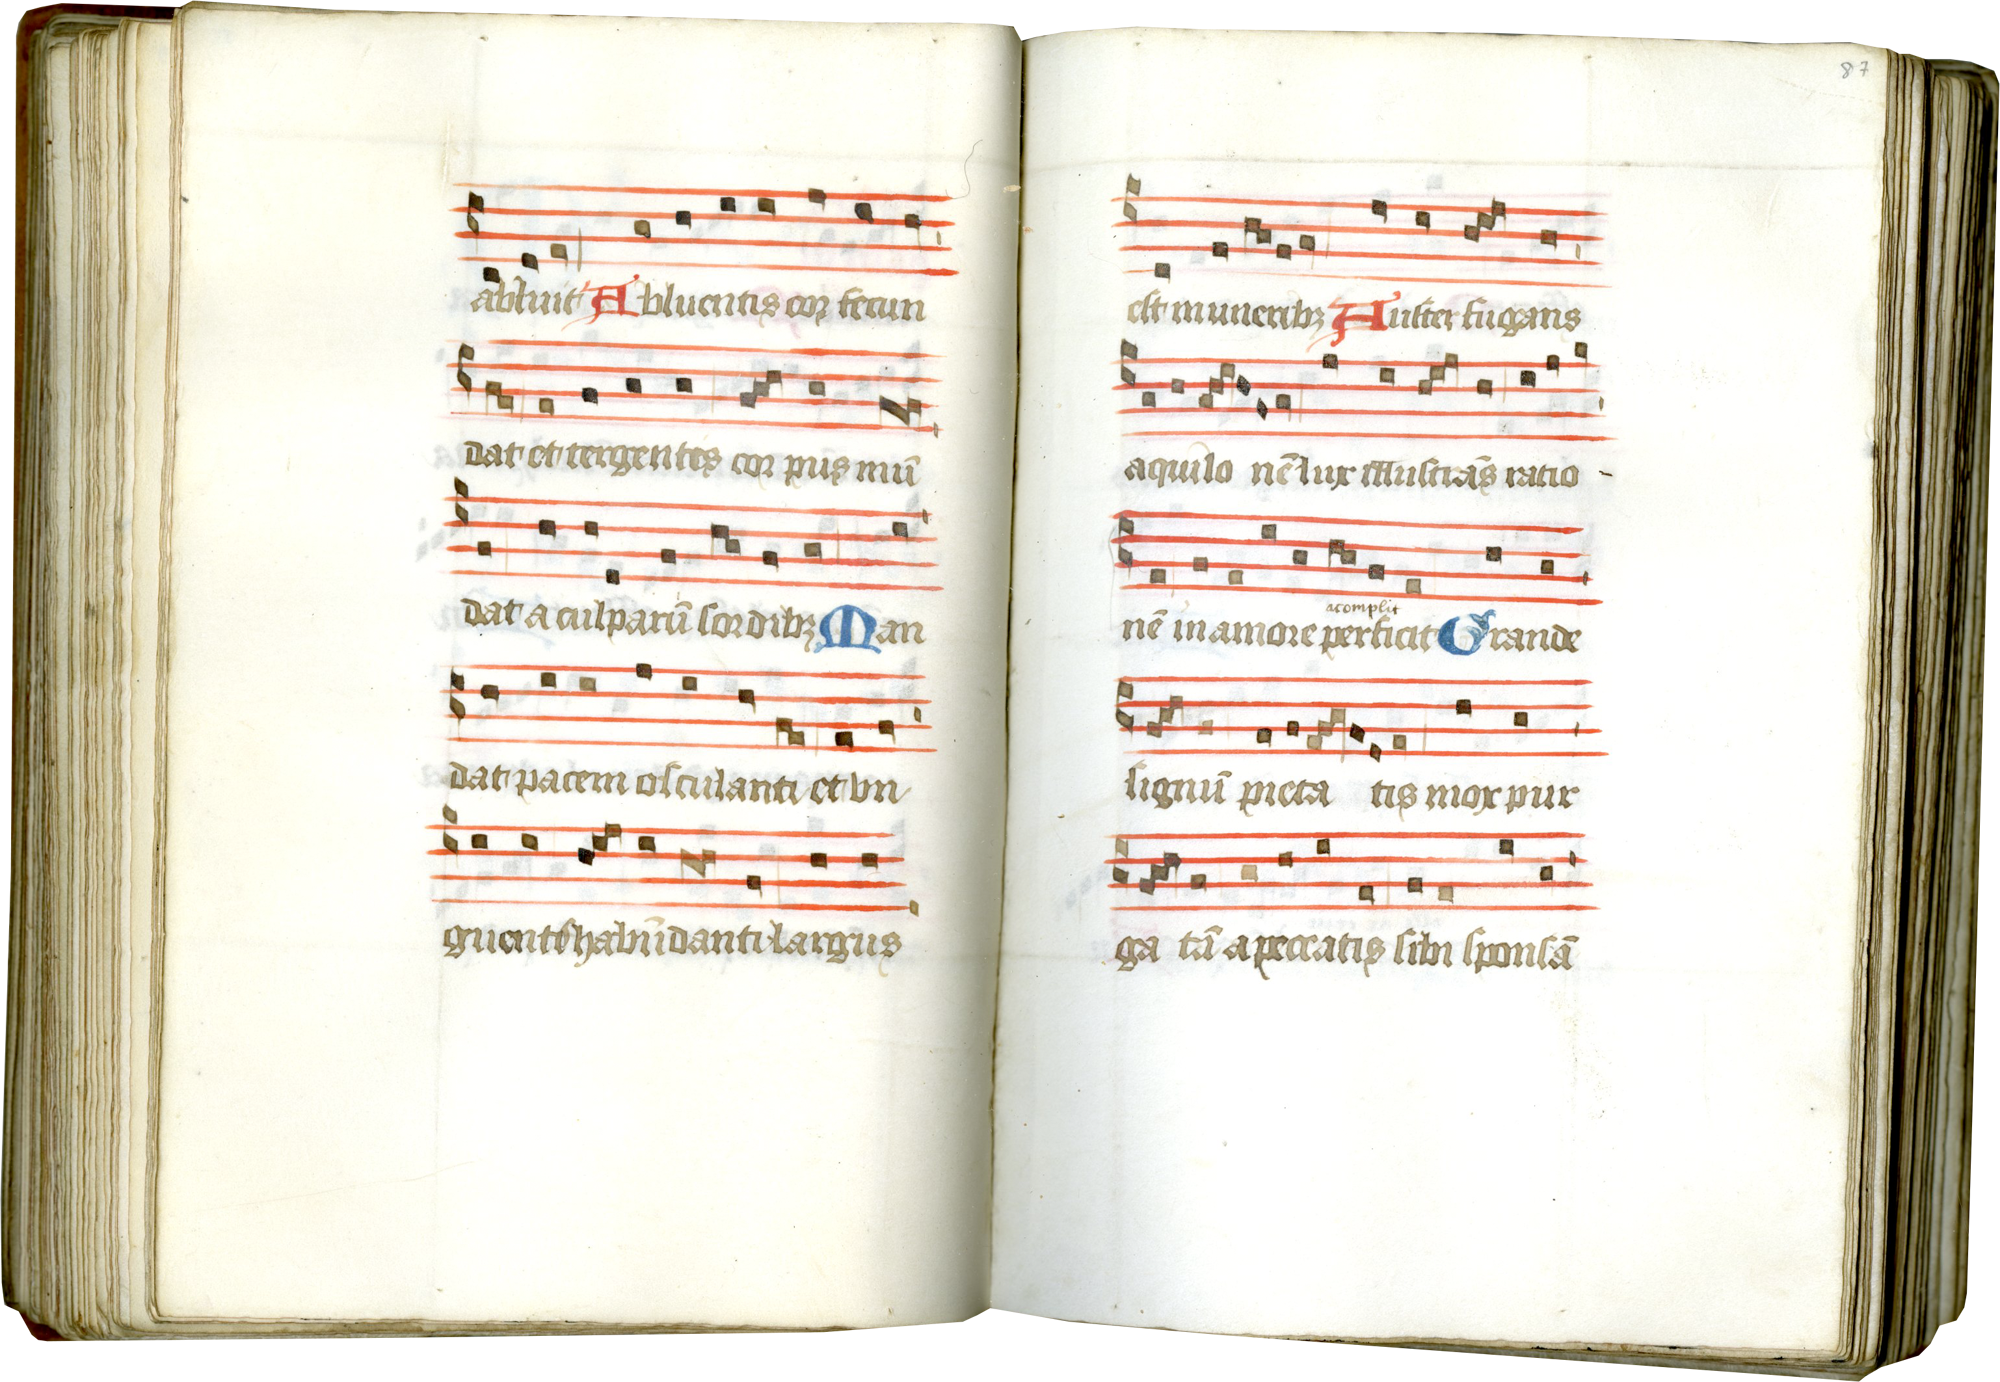 abluit Abluentis cor fecun
dat et tergentis cor pus mū
dat a culparū sordibꝫ Man
dat pacem osculanti et vn
guenti habūdanti largus
87
est muneribꝫ Auster fugans
aquilo nē lux illustrās ratio
acomplit
nē in amore perficit Grande
lignū picta tis mox pur
ga tā a peccatis sibi sponsā